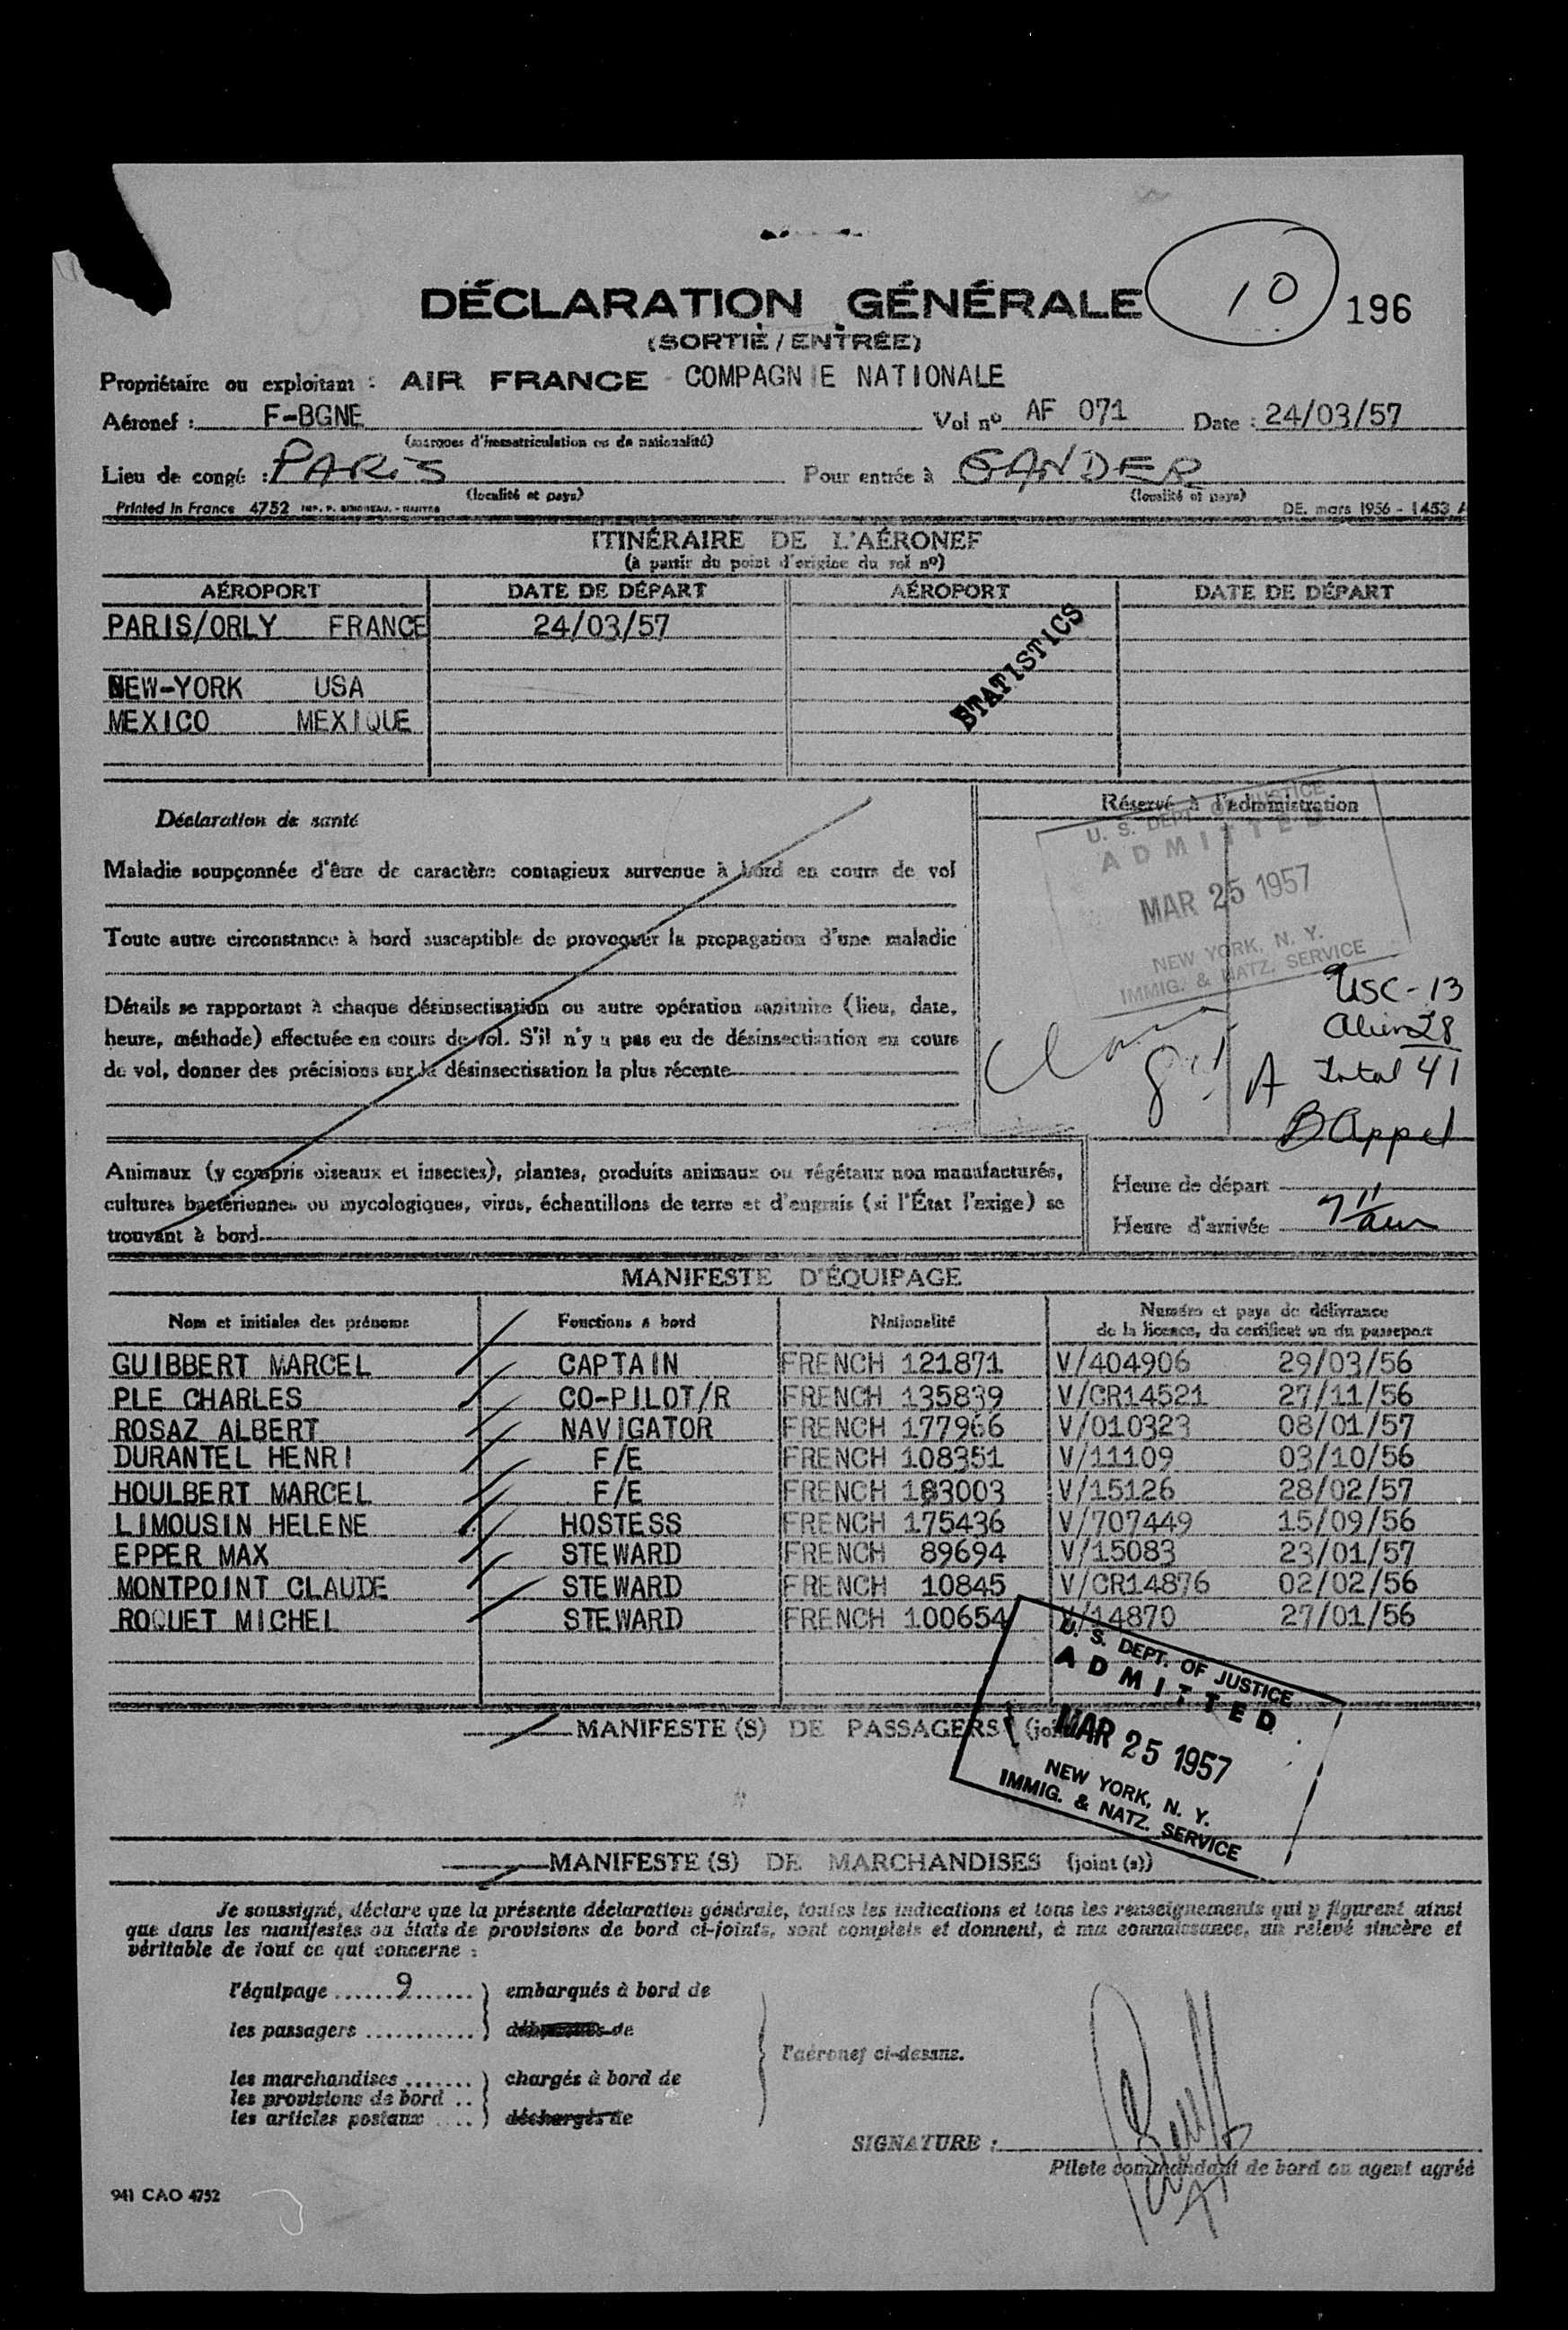 10 196
DÉCLARATION GÉNÉRALE
(SORTIE / ENTRÉE)
Propriétaire ou exploitant : AIR FRANCE COMPAGNIE NATIONALE
Aéronef : F-BGNE Vol nº AF 071 Date : 24/03/57
(marques d'immatriculation ou de nationalité)
Lieu de congé : PARIS Pour entrée à GANDER
(localité et pays) (localité et pays)
Printed in France 4752 IMP. P. SIMONEAU. - NANTES DE. mars 1956 - 1453 A
ITINÉRAIRE DE L'AÉRONEF
(à partir du point d'origine du vol nº)
AÉROPORT DATE DE DÉPART AÉROPORT DATE DE DÉPART
PARIS/ORLY FRANCE 24/03/57
STATISTICS
NEW-YORK USA
MEXICO MEXIQUE
Déclaration de santé
Réservé à l'administration
U. S. DEPT. OF JUSTICE
ADMITTED
MAR 25 1957
NEW YORK, N. Y.
IMMIG. & NATZ. SERVICE
Maladie soupçonnée d'être de caractère contagieux survenue à bord en cours de vol
Toute autre circonstance à bord susceptible de provoquer la propagation d'une maladie
Détails se rapportant à chaque désinsectisation ou autre opération sanitaire (lieu, date,
heure, méthode) effectuée en cours de vol. S'il n'y a pas eu de désinsectisation en cours
de vol, donner des précisions sur la désinsectisation la plus récente
USC - 13
Alien 28
A Total 41
B Appel
Animaux (y compris oiseaux et insectes), plantes, produits animaux ou végétaux non manufacturés,
cultures bactériennes ou mycologiques, virus, échantillons de terre et d'engrais (si l'État l'exige) se
trouvant à bord
Heure de départ
Heure d'arrivée 7 11 am
MANIFESTE D'ÉQUIPAGE
Nom et initiales des prénoms Fonctions à bord Nationalité Numéro et pays de délivrance
de la licence, du certificat ou du passeport
GUIBBERT MARCEL CAPTAIN FRENCH 121871 V/404906 29/03/56
PLE CHARLES CO-PILOT/R FRENCH 135839 V/CR14521 27/11/56
ROSAZ ALBERT NAVIGATOR FRENCH 177966 V/010323 08/01/57
DURANTEL HENRI F/E FRENCH 108351 V/11109 03/10/56
HOULBERT MARCEL F/E FRENCH 183003 V/15126 28/02/57
LIMOUSIN HELENE HOSTESS FRENCH 175436 V/707449 15/09/56
EPPER MAX STEWARD FRENCH 89694 V/15083 23/01/57
MONTPOINT CLAUDE STEWARD FRENCH 10845 V/CR14876 02/02/56
ROQUET MICHEL STEWARD FRENCH 100654 V/14870 27/01/56
U. S. DEPT. OF JUSTICE
ADMITTED
MAR 25 1957
NEW YORK, N. Y.
IMMIG. & NATZ. SERVICE
MANIFESTE (S) DE PASSAGERS (joi
MANIFESTE (S) DE MARCHANDISES (joint (s))
Je soussigné, déclare que la présente déclaration générale, toutes les indications et tous les renseignements qui y figurent ainsi
que dans les manifestes ou états de provisions de bord ci-joints, sont complets et donnent, à ma connaissance, un relevé sincère et
véritable de tout ce qui concerne :
l'équipage ......9....... } embarqués à bord de
les passagers ........... } débarqués de
l'aéronef ci-dessus.
les marchandises ....... } chargés à bord de
les provisions de bord ..
les articles postaux .... } déchargés de
SIGNATURE :
Pilote commandant de bord ou agent agréé
941 CAO 4752